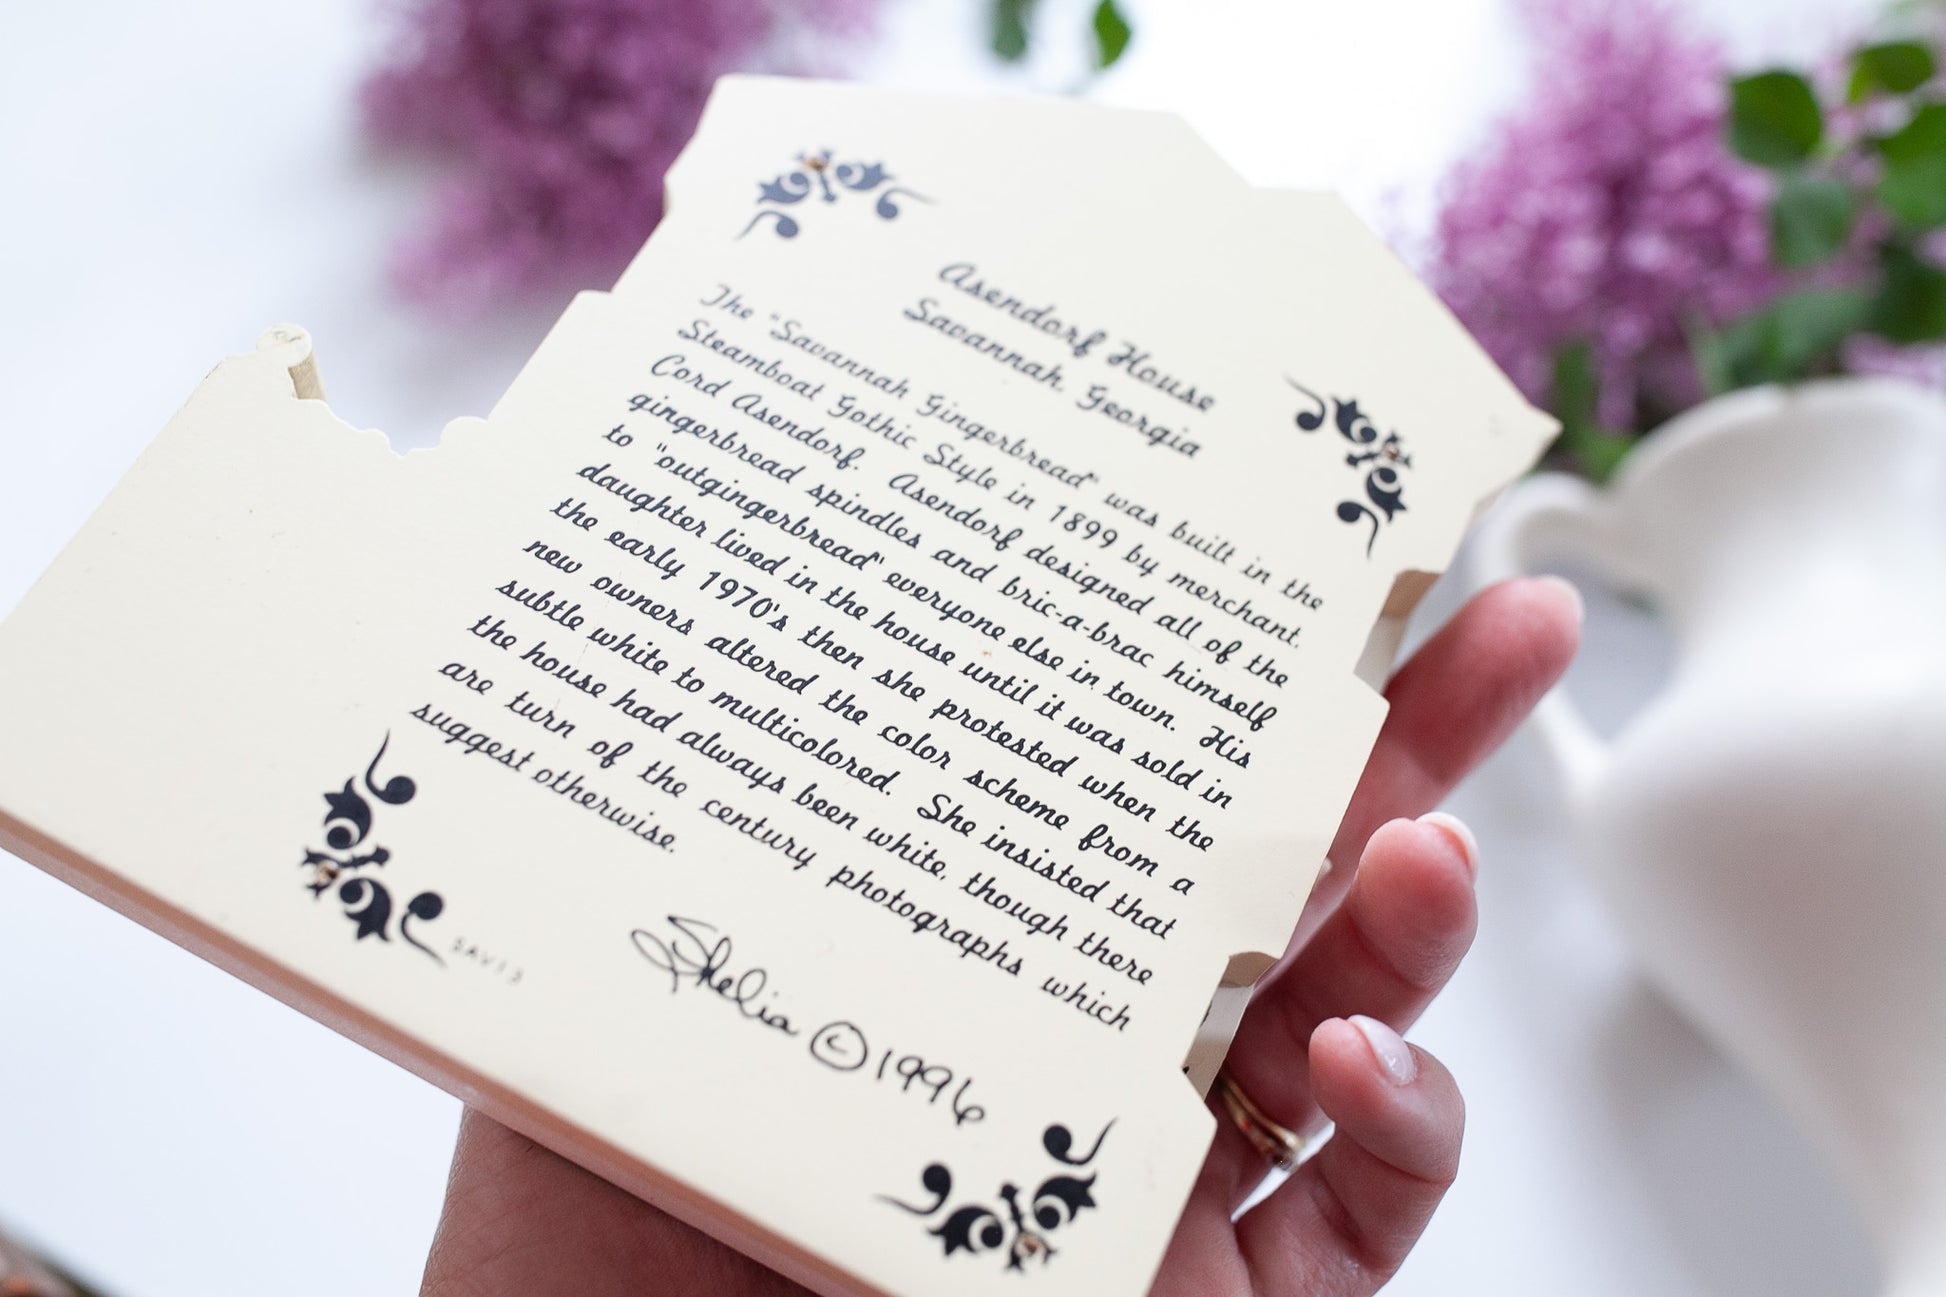 Asendorf House
Savannah, Georgia
The "Savannah Gingerbread" was built in the
Steamboat Gothic Style in 1899 by merchant,
Cord Asendorf. Asendorf designed all of the
gingerbread spindles and bric-a-brac himself
to "outgingerbread" everyone else in town. His
daughter lived in the house until it was sold in
the early 1970's then she protested when the
new owners altered the color scheme from a
subtle white to multicolored. She insisted that
the house had always been white, though there
are turn of the century photographs which
suggest otherwise.
SAV13
Shelia © 1996